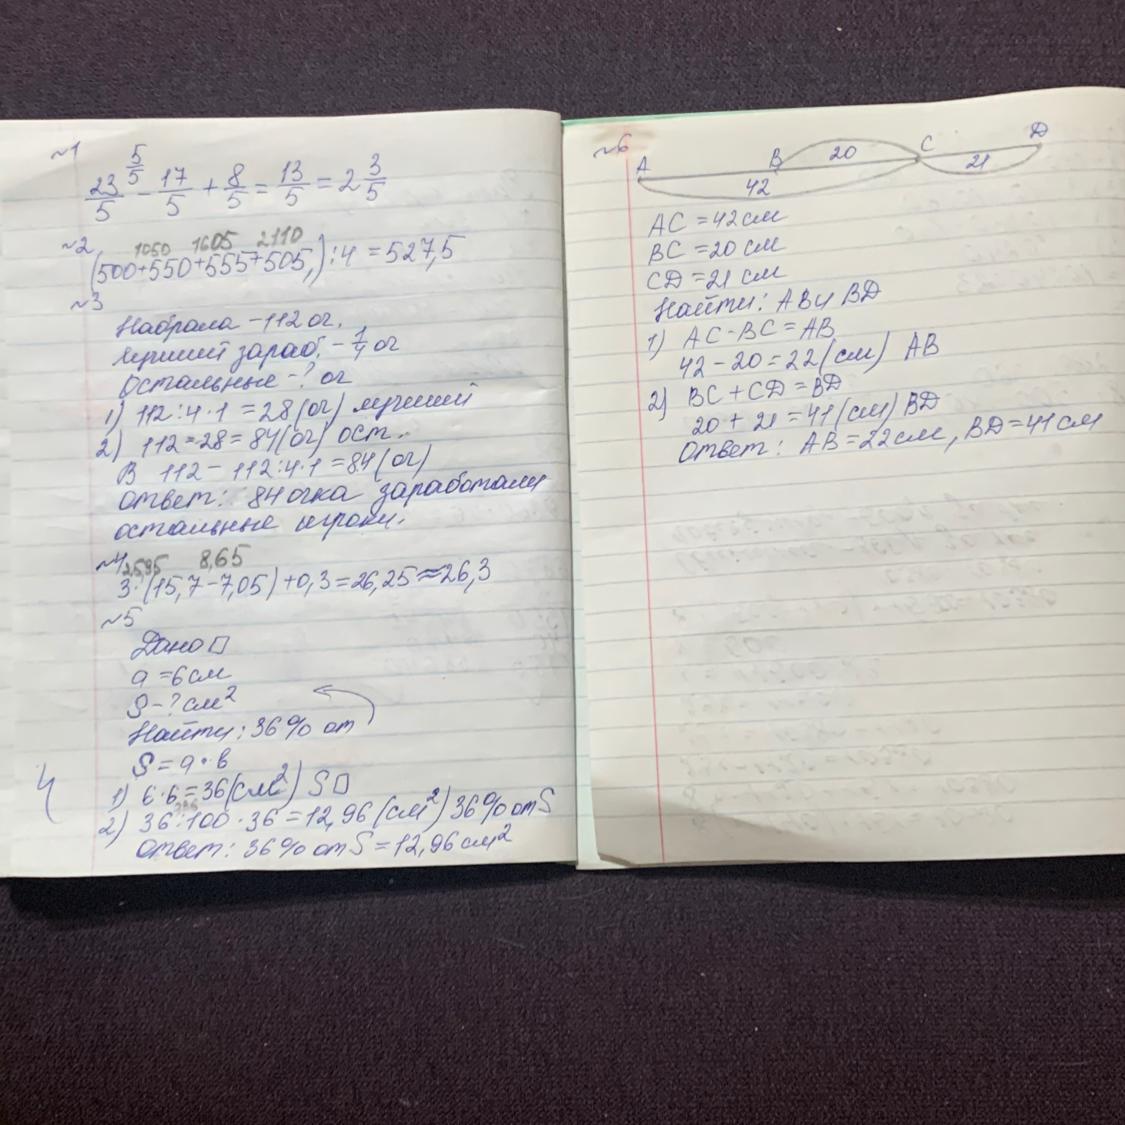 №1
23/5 5/5 - 17/5 + 8/5 = 13/5 = 2 3/5
№2
1050 1605 2110
(500+550+555+505,):4 = 527,5
№3
Набрала - 112 оч.
лучший зараб. - 1/4 оч
остальные - ? оч
1) 112:4·1 = 28 (оч) лучший
2) 112-28 = 84 (оч) ост.
В 112 - 112:4·1 = 84 (оч)
Ответ: 84 очка заработали
остальные игроки.
№4
8,65
3·(15,7-7,05)+0,3 = 26,25 ≈ 26,3
№5
Дано □
a = 6 см
S - ? см²
Найти: 36% от
S = a·в
1) 6·6 = 36 (см²) S□
2) 36:100·36 = 12,96 (см²) 36% от S
Ответ: 36% от S = 12,96 см²
4
№6
A B 20 C 21 D
42
AC = 42 см
BC = 20 см
CD = 21 см
Найти: AB и BD
1) AC - BC = AB
42 - 20 = 22 (см) AB
2) BC + CD = BD
20 + 21 = 41 (см) BD
Ответ: AB = 22 см, BD = 41 см